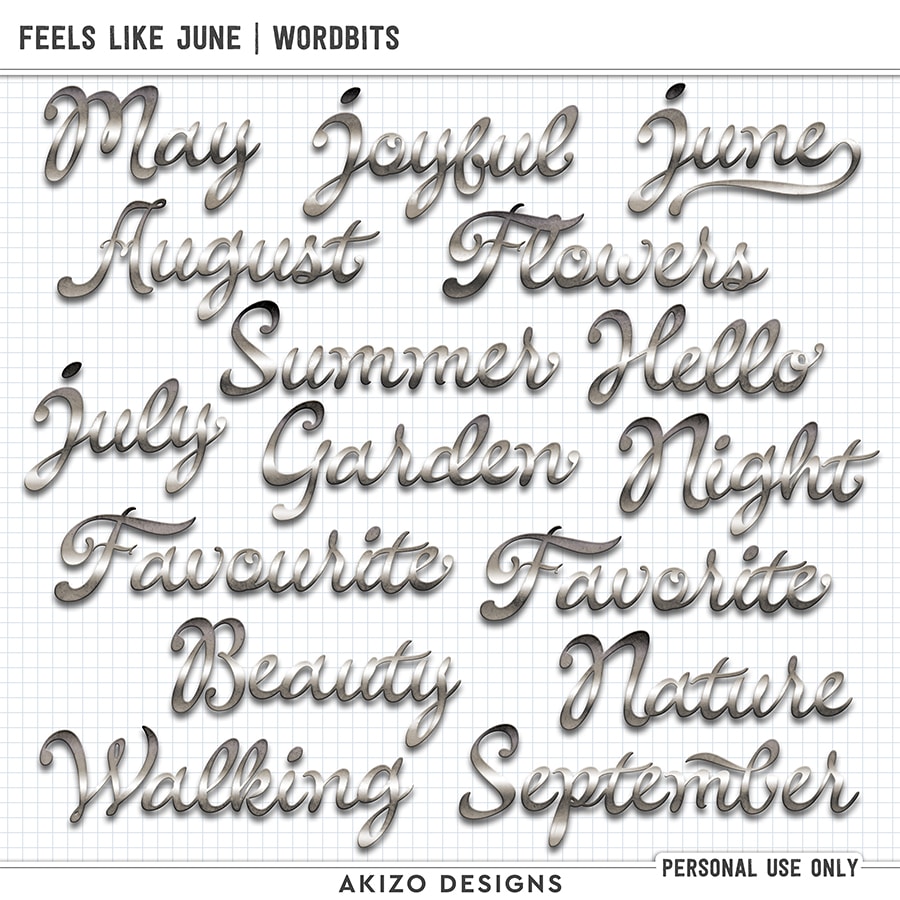 FEELS LIKE JUNE | WORDBITS
May joyful june
August Flowers
Summer Hello
july Garden Night
Favourite Favorite
Beauty Nature
Walking September
PERSONAL USE ONLY
AKIZO DESIGNS